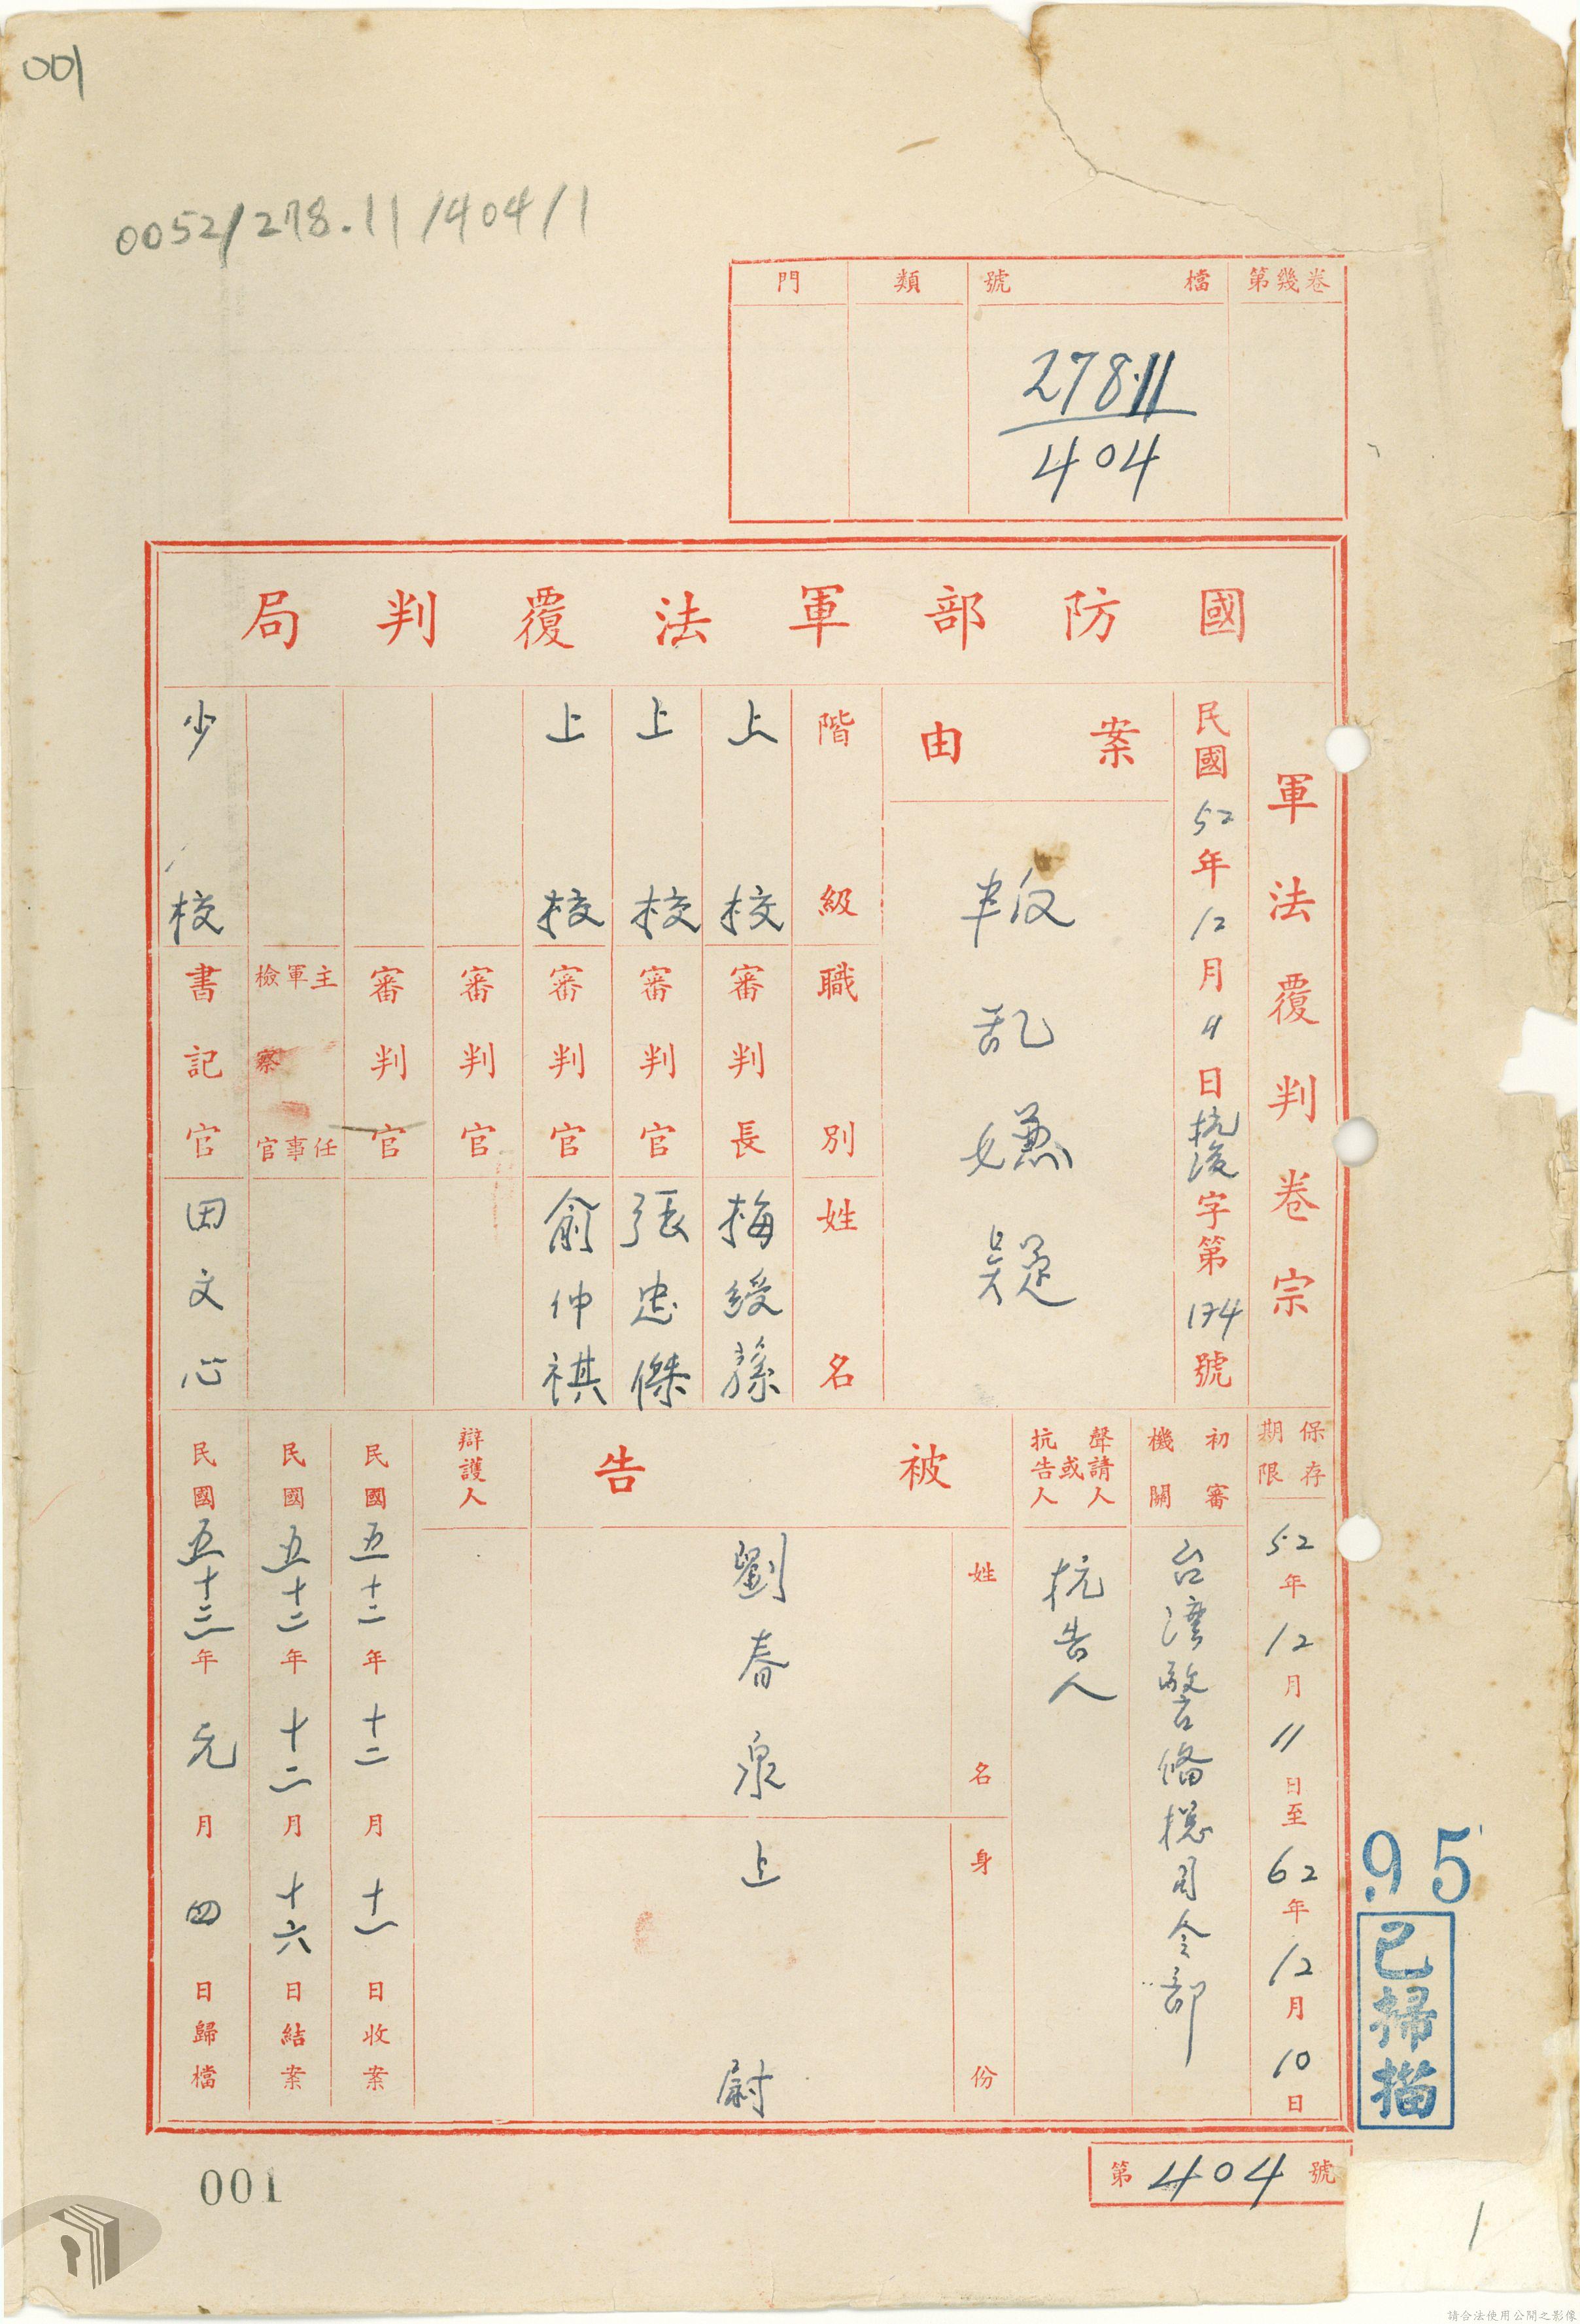 001
0052/278.11/404/1
第幾卷
檔號
278.11
404
類
門
國防部軍法覆判局
軍法覆判卷宗
民國52年12月11日抗復字第174號
案由
叛乱嫌疑
階級 職別 姓名
上校 審判長 梅綬蓀
上校 審判官 張忠傑
上校 審判官 俞仲祺
審判官
審判官
主任軍事檢察官
少校 書記官 田文心
保存期限 52年12月11日至62年12月10日
初審機關 台灣警備總司令部
聲請人或抗告人 抗告人
被告
姓名 劉春泉
身份 上尉
辯護人
民國五十二年十二月十一日收案
民國五十二年十二月十六日結案
民國五十三年元月四日歸檔
95
已掃描
第404號
001
1
請合法使用公開之影像